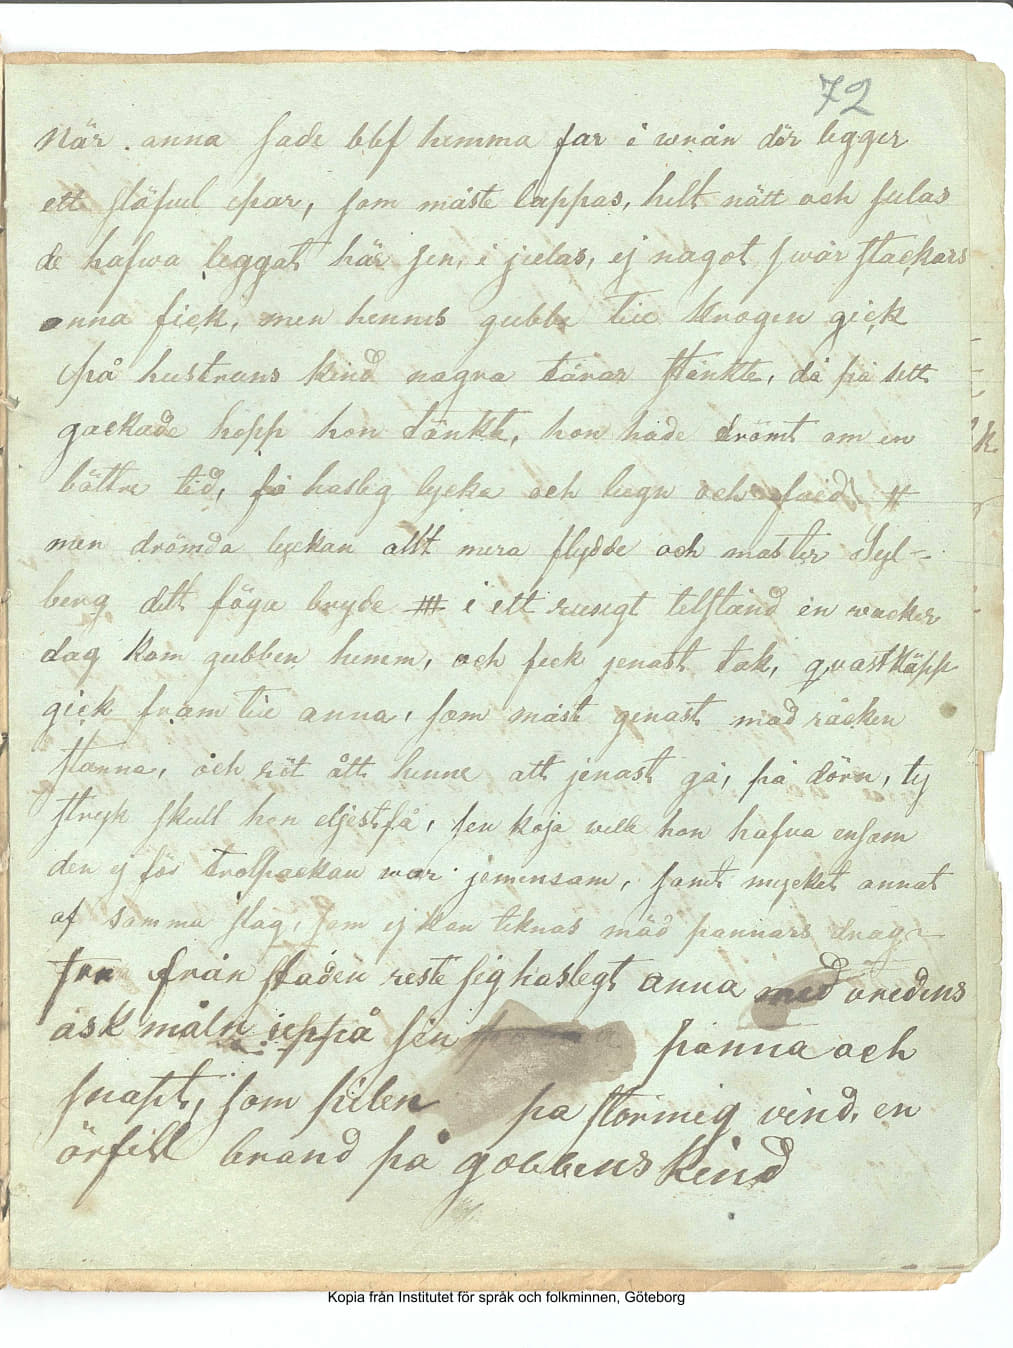 72
När . anna sade blef hemma far i wrån där legger
ett stöfvel par, som måste lappas, helt nätt och sulas
de hafwa leggat här sen i julas, ej nagot swar stackars
anna fick, men hennes gubbe till krogen gick
på hustruns kind nagra tårar stänkte, då på sett
gäckade hopp hon tänkte, hon hade drömt om en
bättre tid, få huslig lycka och lugn och frid #
men drömda lyckan allt mera flydde och master Syl-
berg dett föga bryde # i ett rusigt telstånd en wacker
dag kom gubben himm, och feck jenast tak, qvastkäpp
gick fram till anna, som måste genast mäd räcken
stanna, och röt ått henne att jenast gå, på dörn, ty
stryk skull hon eljest få, sen koja wille han hafva ensam
den ej för trolpackan war jemensam, samt mycket annat
af samma slag, som ej kan teknas mäd pännars drag
från städen reste sig haslegt anna med vredens
åsk måln uppå sin panna och
snapt, som pilen på stormig vind, en
örfill brand på gobbens kind
Kopia från Institutet för språk och folkminnen, Göteborg